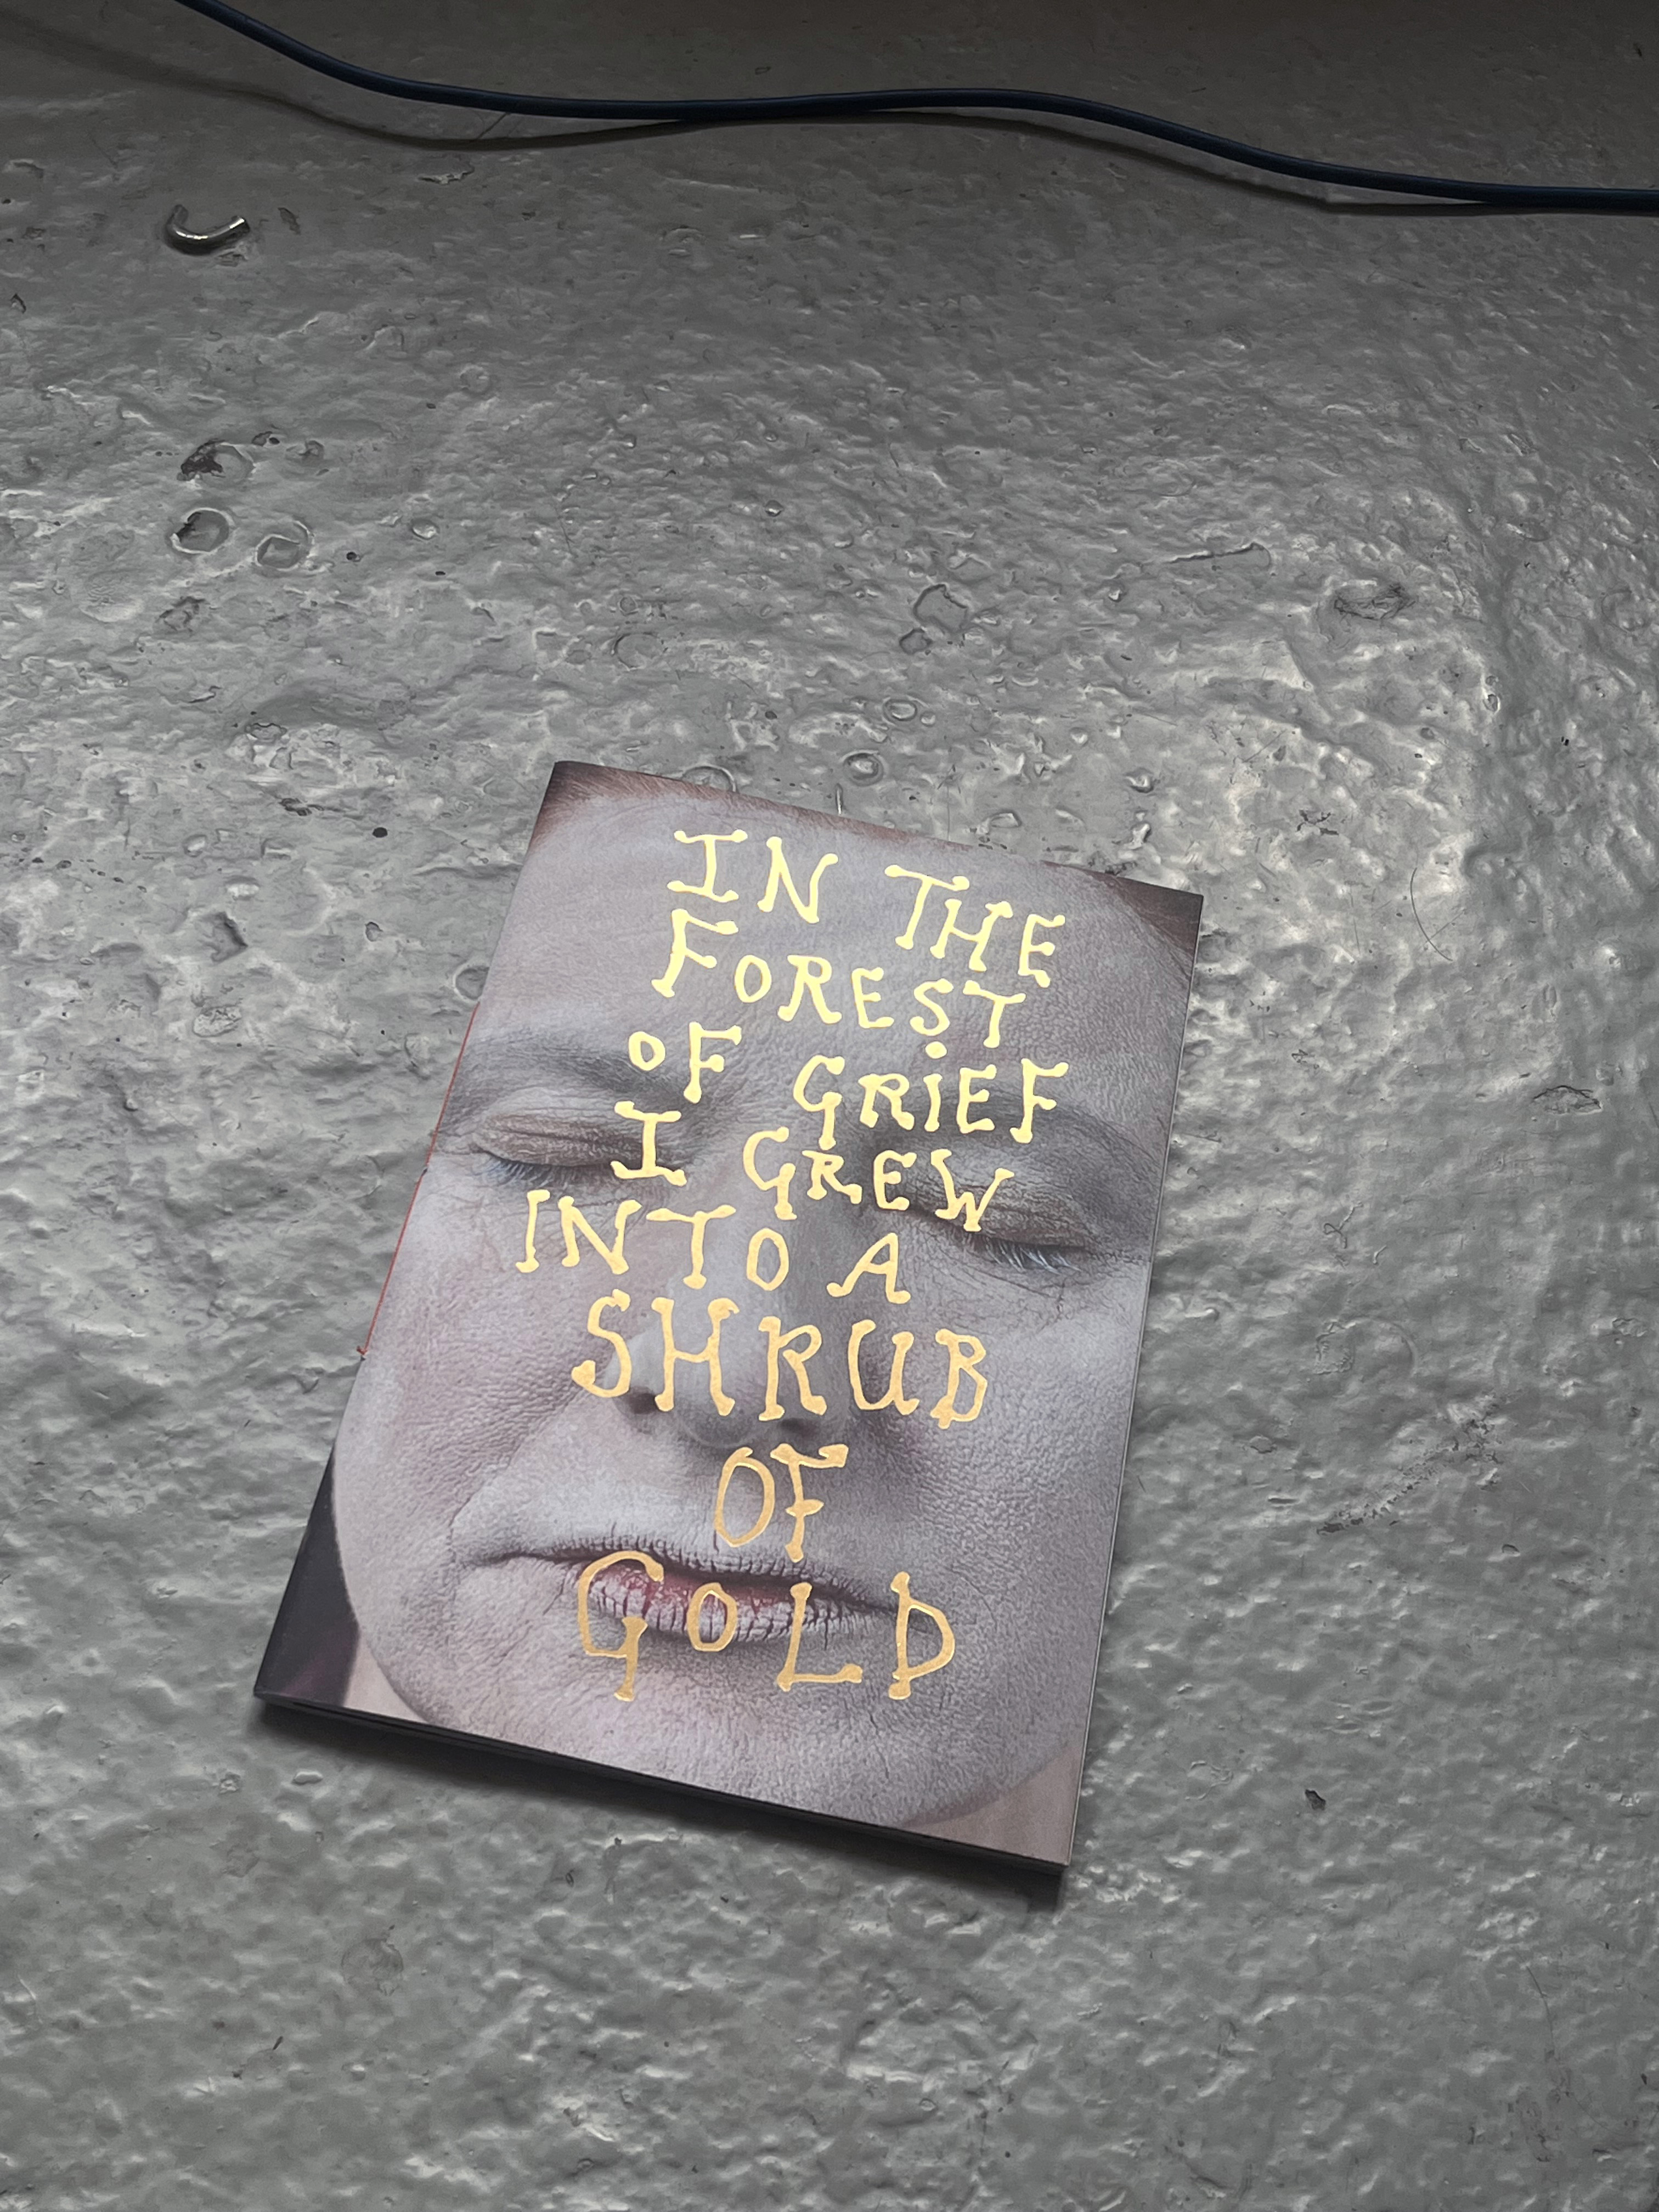 IN THE
FOREST
OF GRiEF
I GREW
INTO A
SHRUB
OF
GOLD